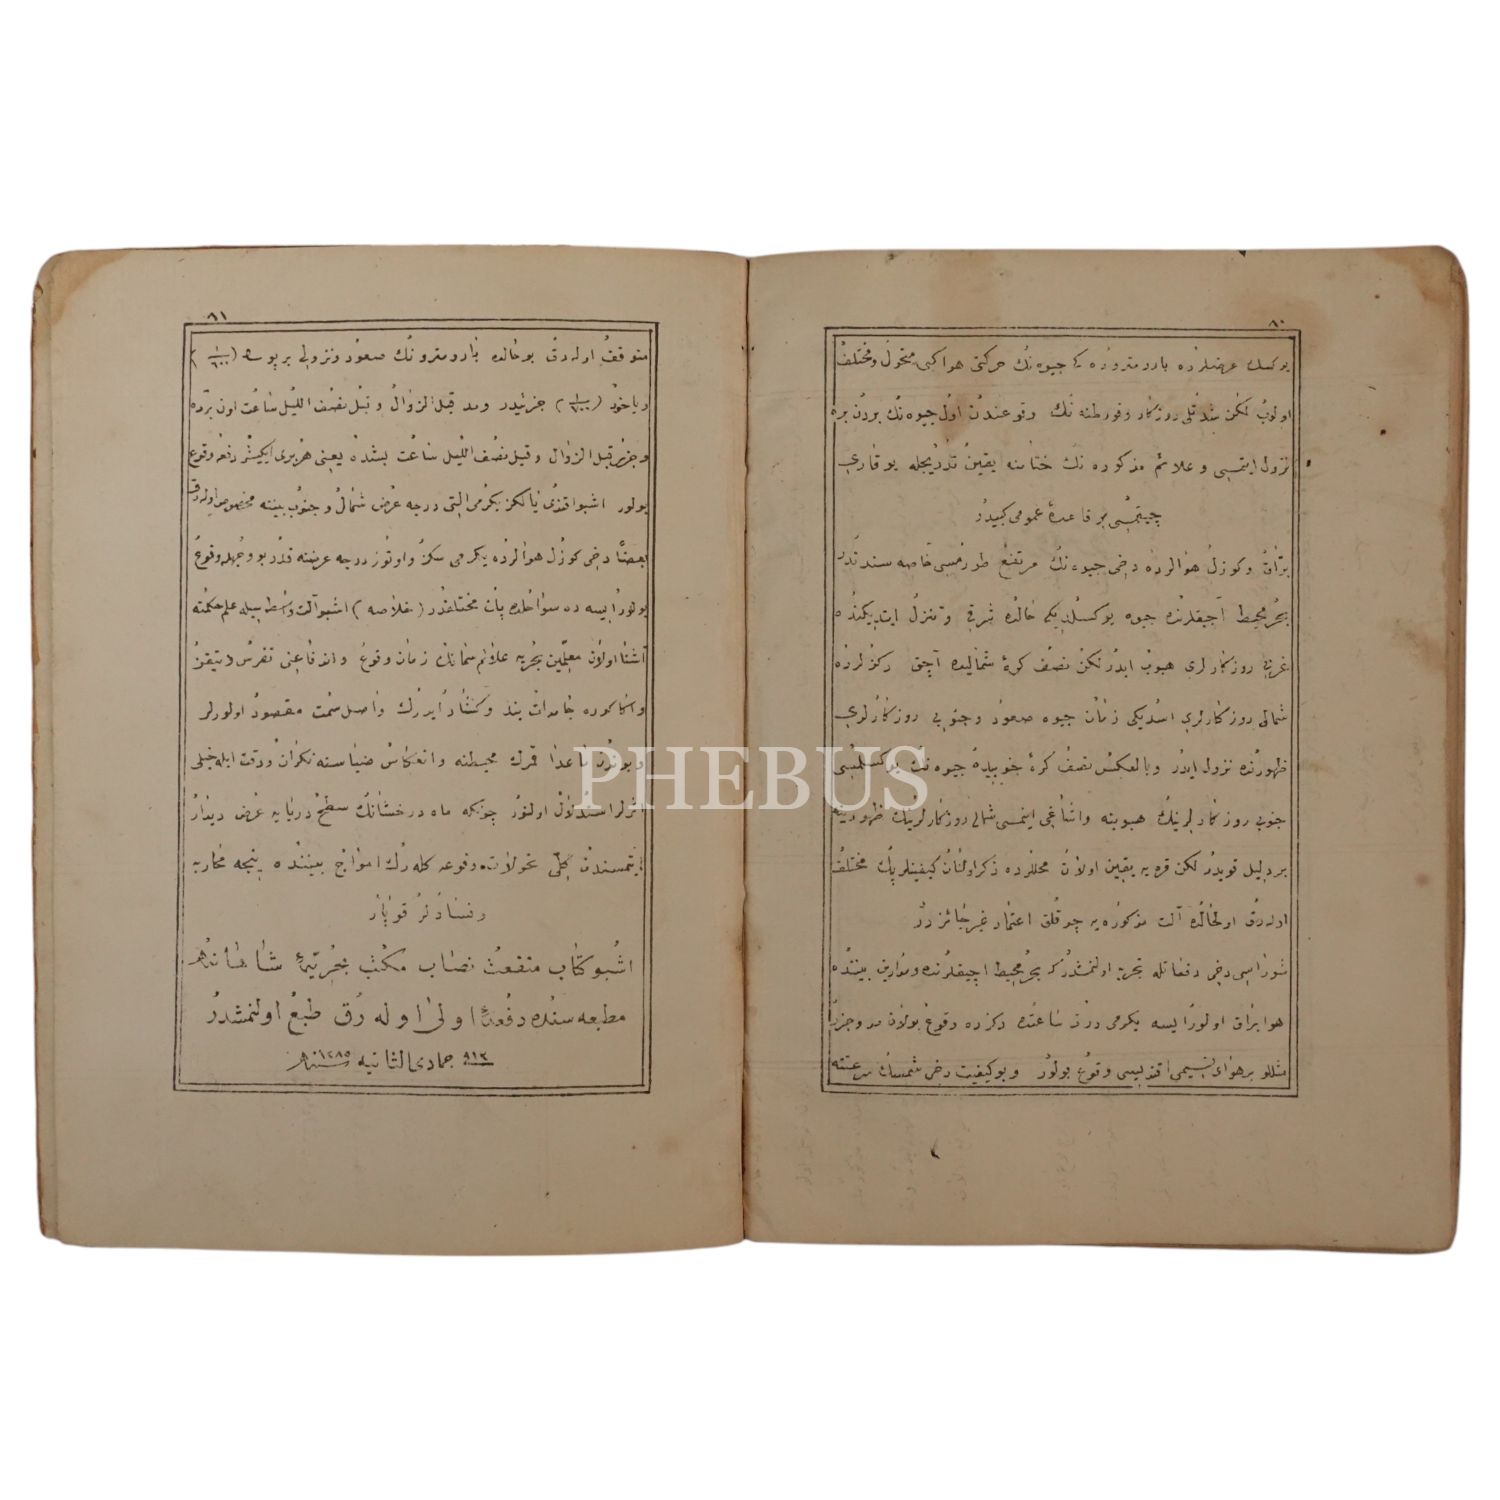 ٨٠
يوكسك عرضلرده بارومترو ده كى جيوه نك حركتى هوا كبى متحول و مختلف
اولوب لكن شدتلى روزكار و فورطنه نك وقوعندن اول جيوه نك بردن بره
نزول ايتمسى و علائم مذكوره نك ختامنه يقين تدريجله يوقارى
چيقمسى بر قاعدهٔ عمومى كبيدر
براق و كوزل هوالرده دخى جيوه نك مرتفع طورمسى خاصه سندندر
بحر محيط آچيقلرنده جيوه يوكسلديكى حالده شرقى و تنزل ايتديكنده
غربى روزكارلرى هبوب ايدر لكن نصف كرهٔ شماليده آچق دكزلرده
شمالى روزكارلرى اسديكى زمان جيوه صعود و جنوبى روزكارلرى
ظهورنده نزول ايدر و بالعكس نصف كرهٔ جنوبيده جيوه نك يوكسلمسى
جنوبى روزكارلرينك هبوبنه و اشاغى اينمسى شمالى روزكارلرينك ظهورينه
بر دليل قويدر لكن قره يه يقين اولان محللرده ذكر اولنان كيفيتلر پك مختلف
اوله رق اولحالده آلت مذكوره يه چوقلق اعتماد غير جائزدر
شوراسى دخى دفعاتله تجربه اولنمشدركه بحر محيط اچيقلرنده و مدارين بيننده
هوا براق اولور ايسه يكرمى درت ساعتده دكزده وقوع بولان مد و جزر
مثللو بر هواى نسيمى اقنديسى وقوع بولور و بو كيفيت دخى شمسك سرعتنه
٨١
متوقف اوله رق بو حالده بارومترونك صعود و نزولى بر پوسه
وياخود جزئيدر و مد قبل الزوال و قبل نصف الليل ساعت اون برده
و جزر قبل الزوال و قبل نصف الليل ساعت بشده يعنى هر برى ايكيشر دفعه وقوع
بولور اشبو اقندى يالكز يكرمى التى درجه عرض شمال و جنوب بيننه مخصوص اوله رق
بعضاً دخى كوزل هوالرده يكرمى سكز و اوتوز درجه عرضنه قدر بو وجهله وقوع
بولور ايسه ده سواحلده پك مختلفدر ( خلاصه ) اشبو آلت واسطه سيله علم حكمته
آشنا اولان معلمين بحريه علائم سمانك زمان وقوع و اندفاعنى تفرس و تيقن
و اكا كوره جامدات بند و كشاد ايدرك واصل سمت مقصود اولورلر
و بوندن ماعدا قمرك محيطنه و انعكاس ضياسنه نكران و دقت ايله خيلى
شيلر استدلال اولنور چونكه ماه درخشانك سطح دريايه عرض ديدار
ايتمسندن كلى تحولات وقوعه كله رك امواج بيننده نيجه محاربه
و فسادلر قوپار
اشبو كتاب منفعت نصاب مكتب بحريهٔ شاهانه
مطبعه سنده دفعهٔ اولى اوله رق طبع اولنمشدر
فى ١٢ جمادى الثانيه سنه ١٢٨٥
PHEBUS